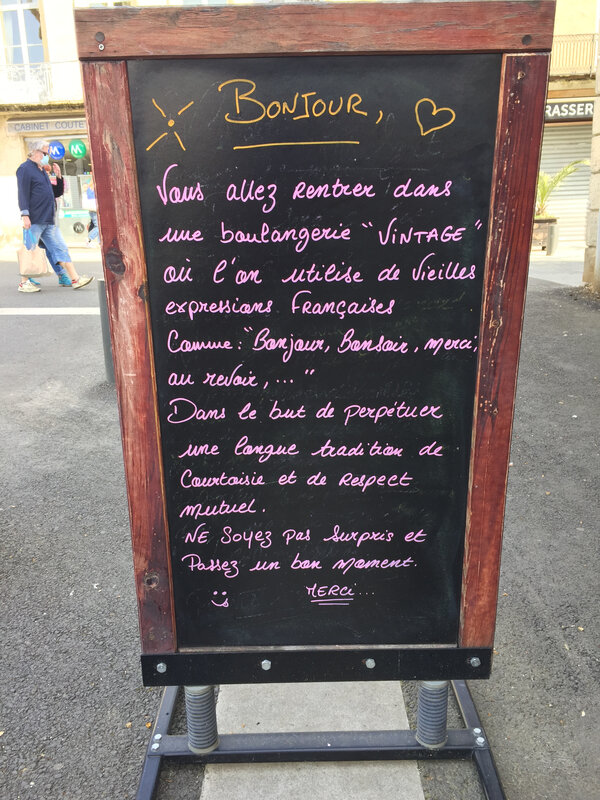 CABINET COUTE
RASSER
BONJOUR,
Vous allez rentrer dans
une boulangerie "VINTAGE"
où l'on utilise de vieilles
expressions Françaises
Comme : "Bonjour, Bonsoir, merci,
au revoir, ... "
Dans le but de perpétuer
une longue tradition de
Courtoisie et de Respect
mutuel.
NE Soyez pas surpris et
Passez un bon moment.
MERCi...